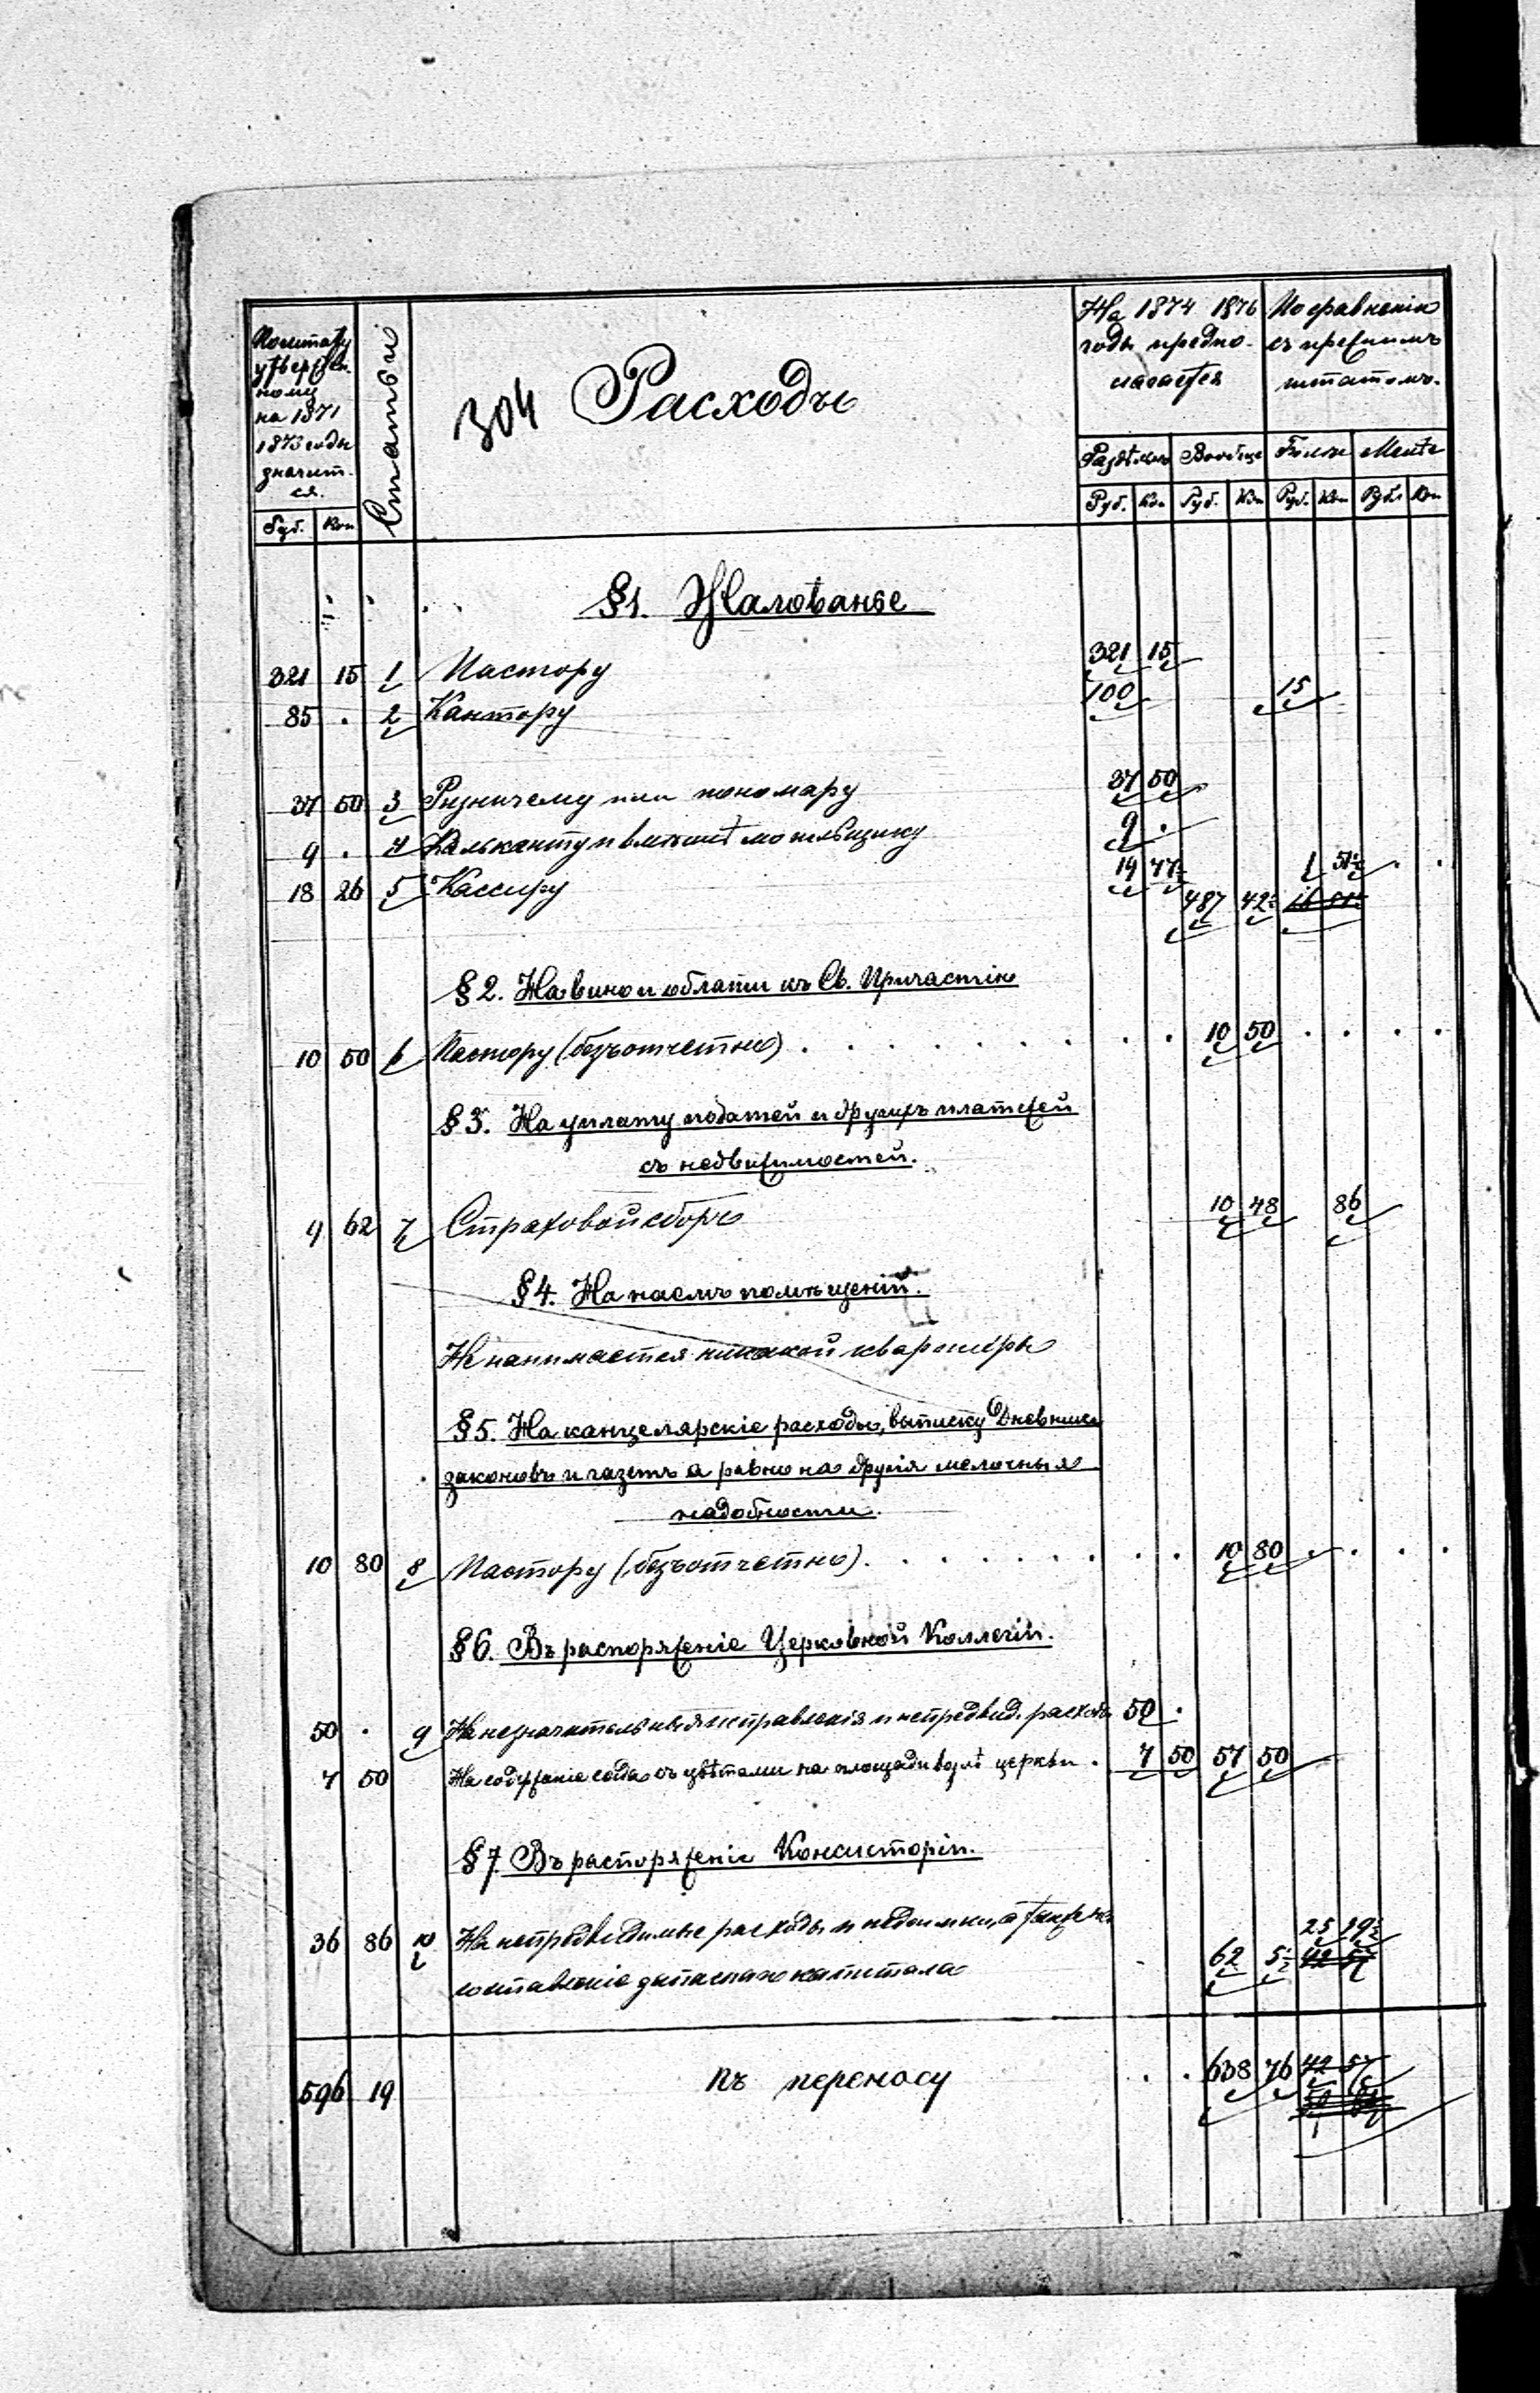 По штату
утвержден-
ному
на 1871
1873 годы
значит-
ся.
Руб. Коп
Статьи
304 Расходы
На 1874 1876
годы предпо-
лагается
По сравнению
съ прежнимъ
штатомъ.
Раздѣльно Вообще Болѣе Менѣе
Руб. Коп Руб. Коп Руб. Коп Рубл Коп
§1. Жалованье
321 15 1 Пастору 321 15
85 . 2 Кантору 100 15
37 50 3 Ризничему или пономару 37 50
9 . 4 Кальканту и вмѣстѣ могильщику 9 .
18 26 5 Кассиру 19 77½ 487 42½ 1 51½
§2. На вино и облати къ Св. Причастію
10 50 6 Пастору (безъотчетно) . . . . . . . . . 10 50 . . . .
§3. На уплату податей и другихъ платежей
съ недвижимостей.
9 62 7 Страховой сборъ 10 48 86
§4. На наемъ помѣщеній.
Не нанимается никакой квартиры
§5. На канцелярскіе расходы, выписку Дневника
законовъ и газетъ а равно на другія мелочныя
надобности.
10 80 8 Пастору (безъотчетно) . . . . . . . . . 10 80 . . . .
§6. Въ распоряженіе Церковной Коллегіи.
50 . 9 На незначительныя исправленія и непредвид. расходы 50 .
7 50 На содержаніе сада съ цвѣтами на площади возлѣ церкви . 7 50 57 50
§7 Въ распоряженіе Консисторіи.
36 86 10 На непредвидимые расходы и недоимки, а также на
составленіе запаснаго капитала 62 5½ 25 19½
596 19 къ переносу . . 638 76 42 57